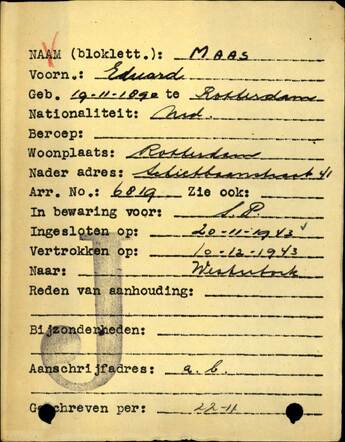 NAAM (bloklett.): MAAS
Voorn.: Eduard
Geb. 19-11-1890 te Rotterdam
Nationaliteit: Ned.
Beroep:
Woonplaats: Rotterdam
Nader adres: Schietbaanstraat 41
Arr. No.: 6819 Zie ook:
In bewaring voor: S.D.
Ingesloten op: 20-11-1943
Vertrokken op: 10-12-1943
Naar: Westerbork
Reden van aanhouding:
Bijzonderheden:
Aanschrijfadres: a.b.
Geschreven per: 22-11
J